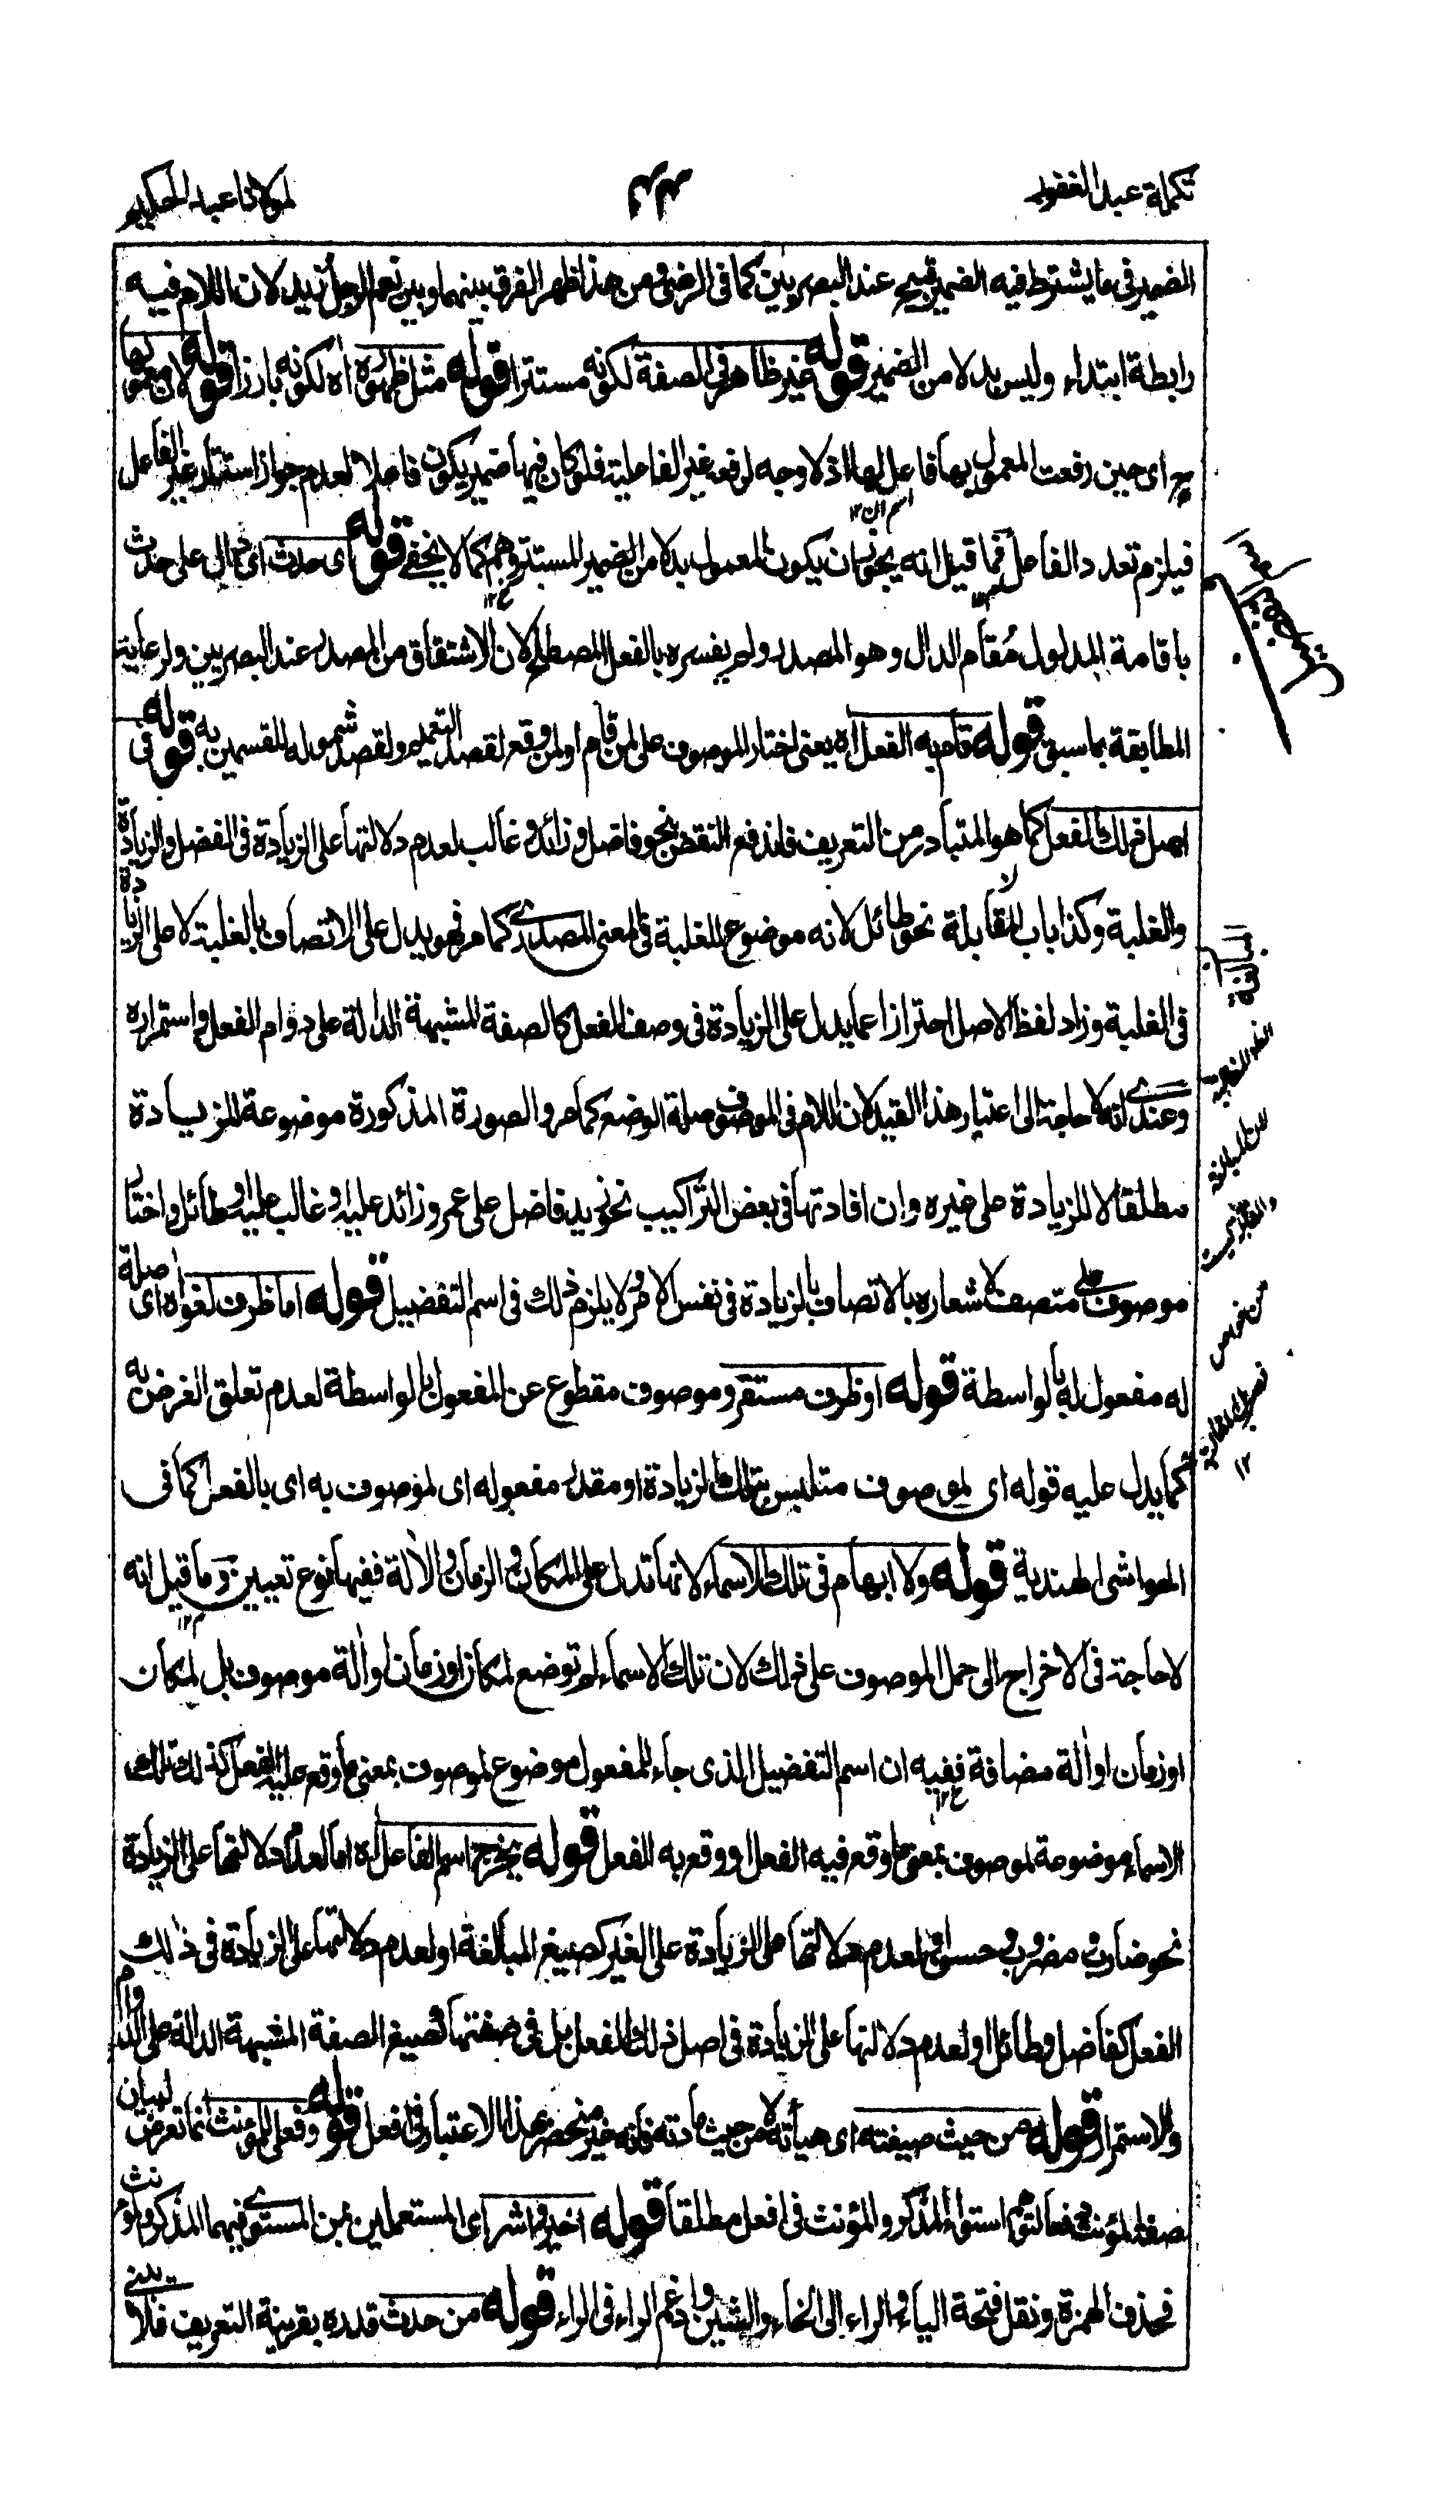 تكملة عبد الغفور
لمولانا عبد الحكيم
الضمير في ما يشترط فيه الضمير قبيح عند البصريين كما في الرضى ومن هذا ظهر الفرق بينهما وبين نعم الرجل زيد لان اللام فيه
رابطة ابتداء وليس بدلا من الضمير قوله غير ظاهر في الصفة لكونه مستترا قوله مثل ظهوره اه لكونه بارزا قوله لان معمولها
ح اى حين رفعت المعمول بها فاعل لها اذ لا وجه لرفعه غير الفاعلية فلو كان فيها ضمير يكون فاعلا لعدم جواز استتار غير الفاعل
فيلزم تعدد الفاعل فما قيل انه يجوز ان يكون المعمول بدلا من الضمير المستتر وهم كما لا يخفى قوله اى حدث اى دال على حدث
باقامة المدلول مُقام الدال وهو المصدر ولم يفسره بالفعل المصطلح لان الاشتقاق من المصدر عند البصريين ولرعاية
المطابقة بما سبق قوله قام به الفعل اه يعنى اختار الموصوف على لمن قام او لمن وقع لقصد التعميم ولقصد شموله للقسمين به قوله في
اصل ذلك الفعل كما هو المتبادر من التعريف فاندفع النقض بنحو فاضل وزائد وغالب لعدم دلالتها على الزيادة في الفضل والزيادة
والغلبة وكذا باب المقابلة نحو طائل لانه موضوع للغلبة في المعنى المصدرى كما مر فهو يدل على الاتصاف بالغلبة لا على الزيادة
في الغلبة وزاد لفظ الاصل احترازا عما يدل على الزيادة في وصف الفعل كالصفة المشبهة الدالة على دوام الفعل واستمراره
وعندى انه لا حاجة الى اعتبار هذا القيد لان اللام في الموصوف صلة الوضع كما مر والصورة المذكورة موضوعة للزيادة
مطلقا لا للزيادة على غيره وان افادتها في بعض التراكيب نحو زيد فاضل على عمرو وزائد عليه او غالب عليه او طائل واختار
موصوف على متصف لاشعاره بالاتصاف بالزيادة في نفس الامر ولا يلزم ذلك في اسم التفضيل قوله اما ظرف لغو اه اى صلة
له مفعول له بالواسطة قوله او ظرف مستقر وموصوف مقطوع عن المفعول بالواسطة لعدم تعلق الغرض به
كما يدل عليه قوله اى لموصوف متلبس بتلك الزيادة او مقدر مفعوله اى لموصوف به اى بالفعل كما في
الحواشى الهندية قوله ولا ابهام في تلك الاسماء لانها تدل على المكان والزمان والالة ففيها نوع تعيين وما قيل انه
لا حاجة في الاخراج الى حمل الموصوف على ذلك لان تلك الاسماء لم توضع لمكان او زمان او الة موصوف بل لمكان
او زمان او الة مضافة ففيه ان اسم التفضيل الذى جاء للمفعول موضوع لموصوف بمعنى ما وقع عليه الفعل كذلك تلك
الاسماء موضوعة لموصوف بمعنى ما وقع فيه الفعل او وقع به الفعل قوله يخرج اسم الفاعل اه اما لعدم دلالتها على الزيادة
نحو ضارب ومضروب وحسن او لعدم دلالتها على الزيادة على الغير كصيغ المبالغة او لعدم دلالتها على الزيادة في ذلك
الفعل كفاضل وطائل او لعدم دلالتها على الزيادة في اصل ذلك الفعل بل في صفتها كصيغ الصفة المشبهة الدالة على الدوام
والاستمرار قوله من حيث صيغته اى هيأته لا من حيث مادته فانه غير منحصر بهذا الاعتبار في افعل قوله وفعلى للمؤنث انما تعرض لبيان
صفة المؤنث دفعا لتوهم استواء المذكر والمؤنث في افعل مطلقا قوله اخير واشر اى المستعملين بمن المستوى فيهما المذكر والمؤنث
فحذف الهمزة ونقل فتحة الياء والراء الى الخاء والشين وادغم الراء في الراء قوله من حدث قدره بقرينة التعريف فلا يبنى